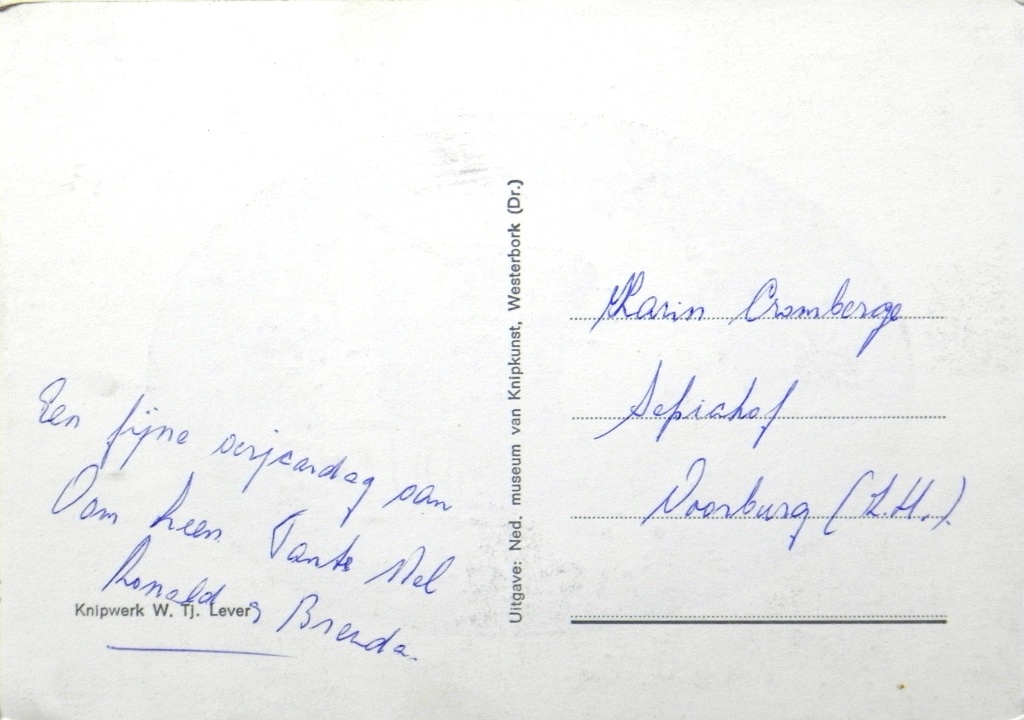 Een fijne verjaardag van
Oom Leen Tante Nel
Ronald & Brenda.
Knipwerk W. Tj. Lever
Uitgave: Ned. museum van Knipkunst, Westerbork (Dr.)
Karin Cromberge
Sepiahof
Voorburg (Z.H.)